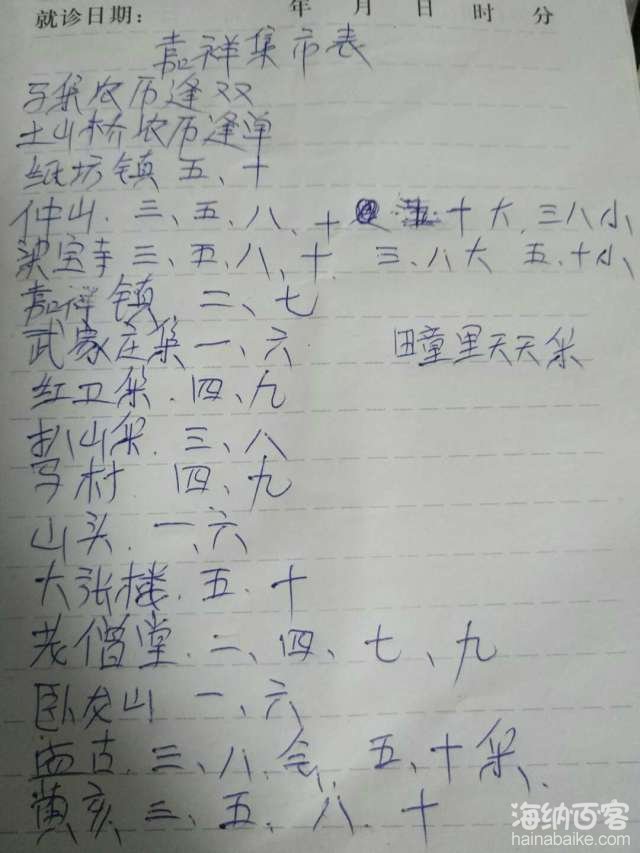 就诊日期： 年 月 日 时 分
嘉祥集市表
马集农历逢双
土山桥农历逢单
纸坊镇 五、十
仲山. 三、五、八、十 五十大. 三八小
梁宝寺 三、五、八、十. 三、八大 五、十小
嘉祥镇 二、七
武家庄集 一、六 疃里天天集
红卫集. 四、九
扒山集. 三、八
马村 四、九
山头. 一、六
大张楼. 五. 十
老僧堂. 二、四、七、九
卧龙山 一、六
孟古. 三、八. 会 五、十集.
黄亥 三、五、八、十
海纳百客
hainabaike.com